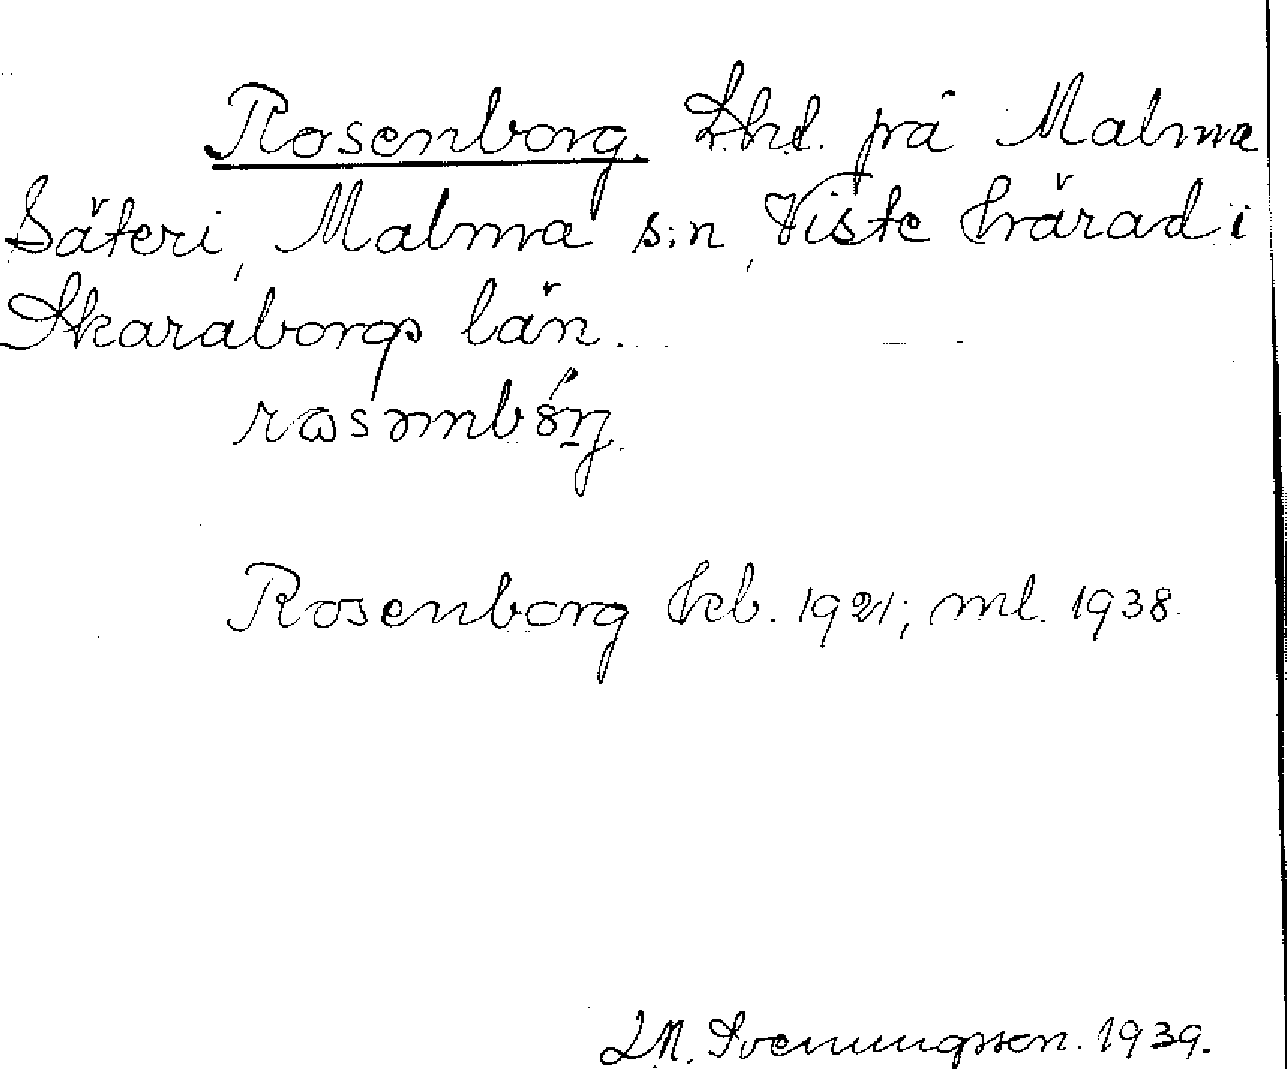 Rosenborg. Lht. på Malma
Säteri, Malma s:n, Viste härad i
Skaraborgs län.
Rosenborg kb. 1921; ml. 1938.
L.M. Svenungsson. 1939.